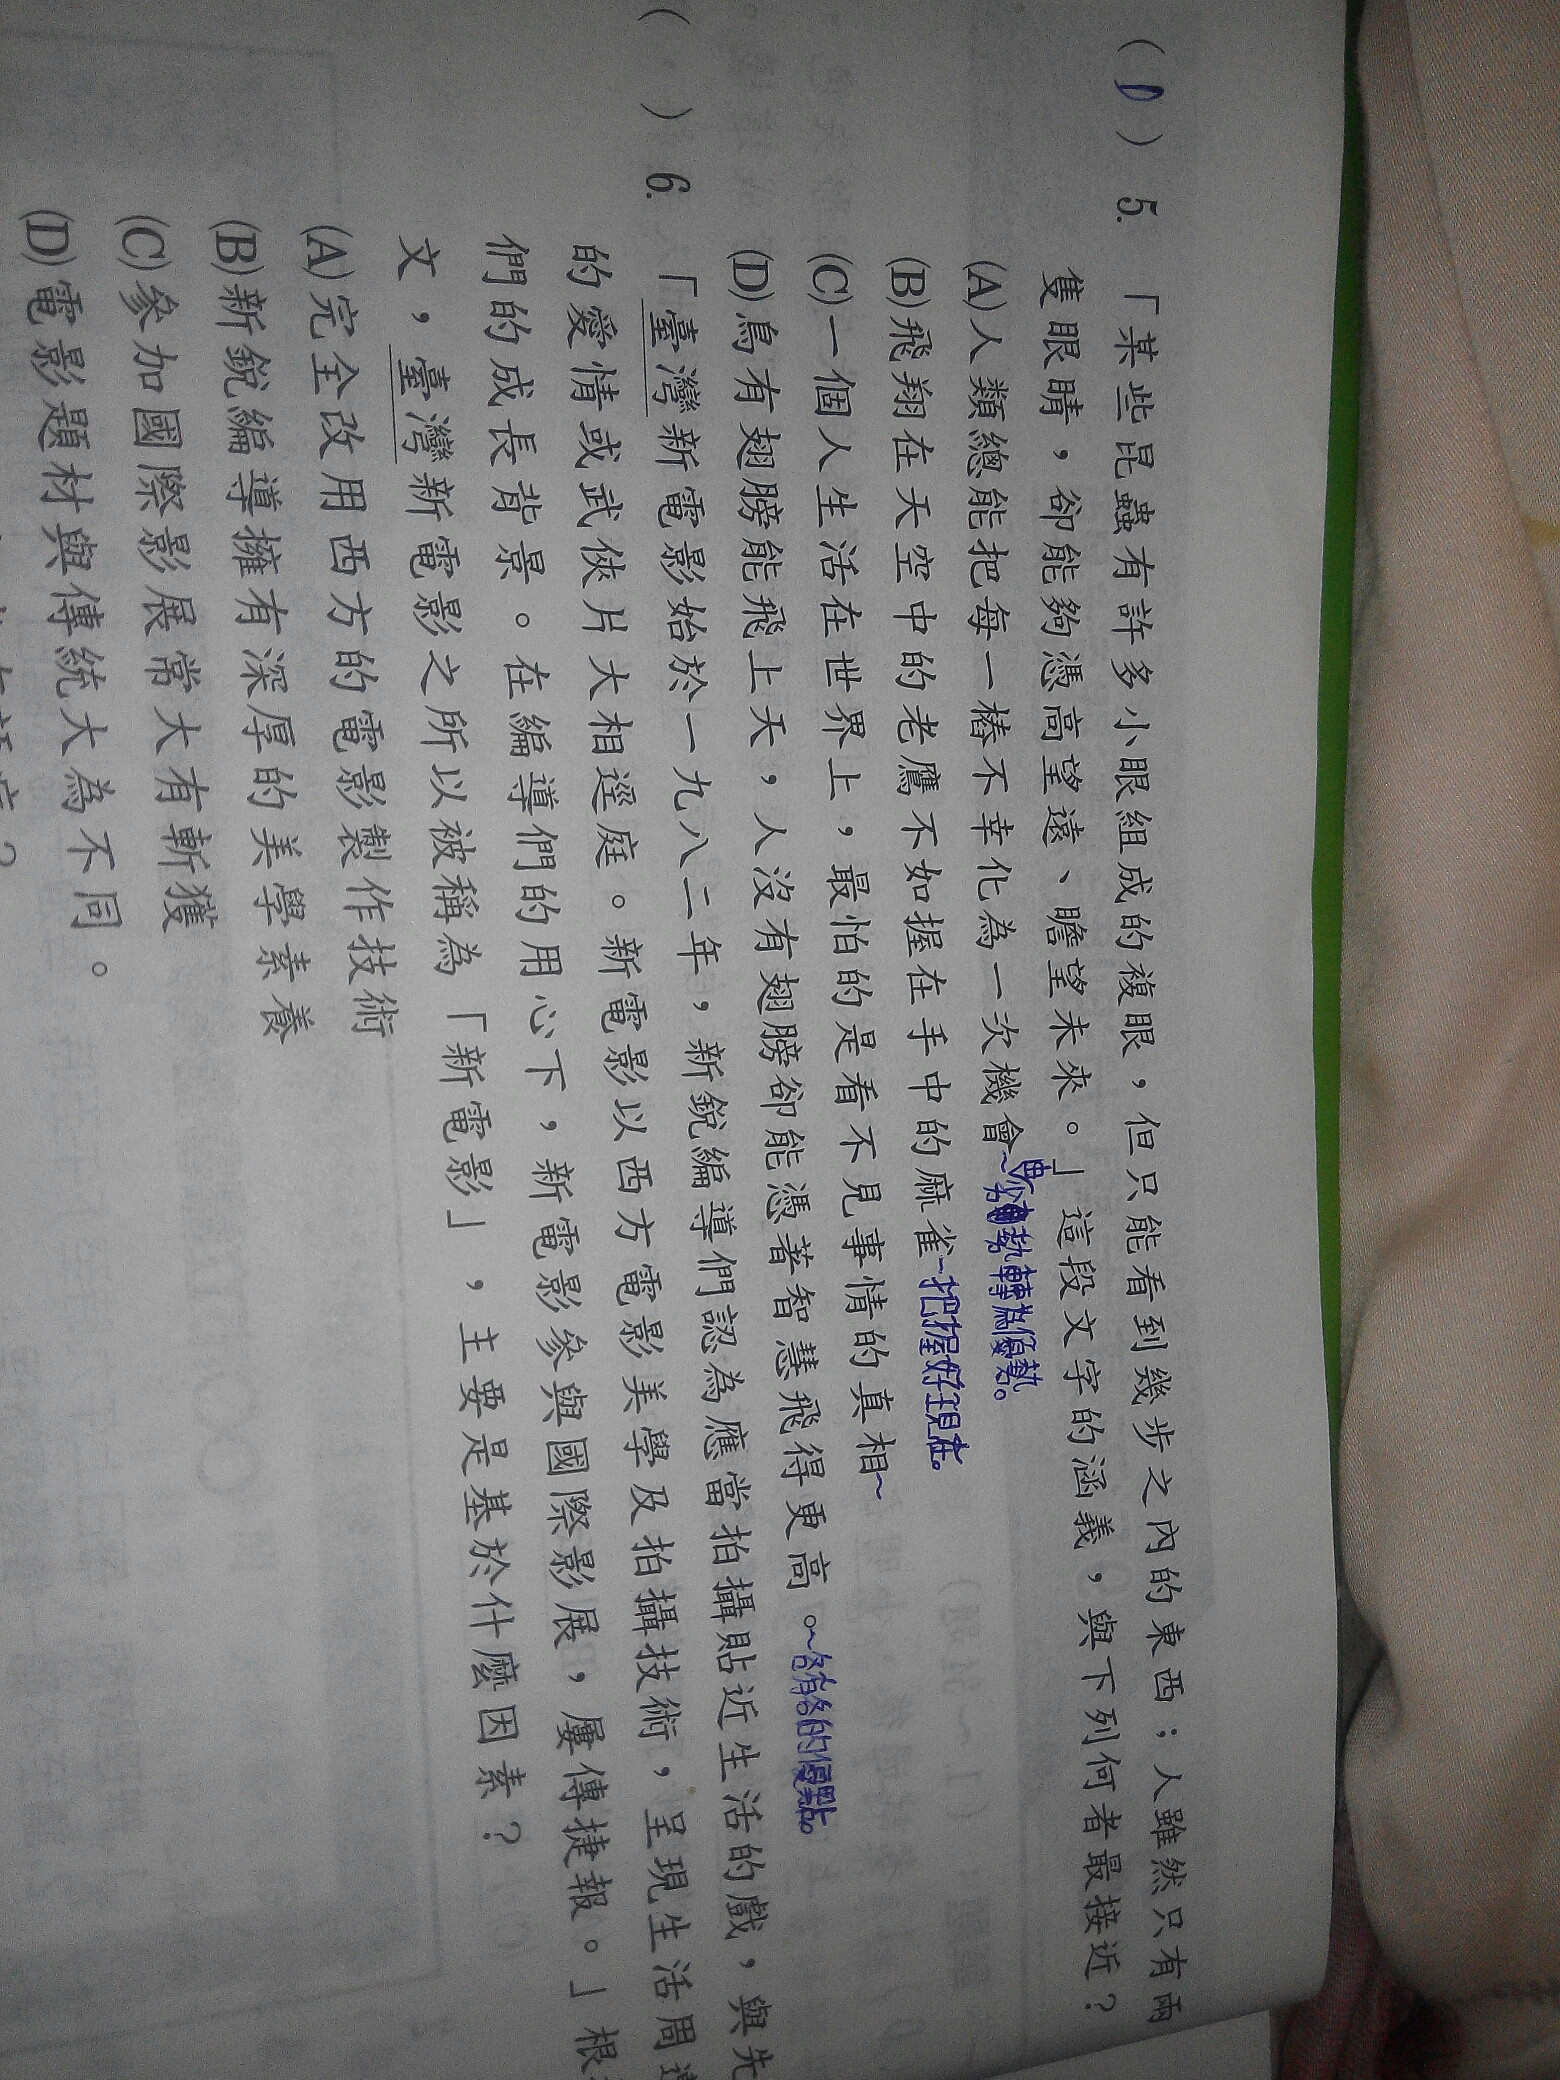 (D) 5.「某些昆蟲有許多小眼組成的複眼，但只能看到幾步之內的東西；人雖然只有兩
隻眼睛，卻能夠憑高望遠、瞻望未來。」這段文字的涵義，與下列何者最接近？
(A)人類總能把每一樁不幸化為一次機會~勢轉為優勢。
(B)飛翔在天空中的老鷹不如握在手中的麻雀~把握好現在。
(C)一個人生活在世界上，最怕的是看不見事情的真相~
(D)鳥有翅膀能飛上天，人沒有翅膀卻能憑著智慧飛得更高。~各有各的優點。
( ) 6.「臺灣新電影始於一九八二年，新銳編導們認為應當拍攝貼近生活的戲，與先
的愛情或武俠片大相逕庭。新電影以西方電影美學及拍攝技術，呈現生活周
們的成長背景。在編導們的用心下，新電影參與國際影展，屢傳捷報。」根
文，臺灣新電影之所以被稱為「新電影」，主要是基於什麼因素？
(A)完全改用西方的電影製作技術
(B)新銳編導擁有深厚的美學素養
(C)參加國際影展常大有斬獲
(D)電影題材與傳統大為不同。